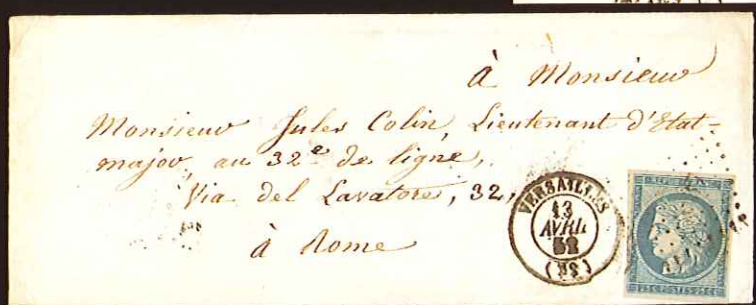 à Monsieur
Monsieur Jules Colin, Lieutenant d'Etat-
major, au 32e de ligne,
Via del Lavatore, 32,
à Rome
VERSAILLES
13
AVRIL
52
(72)
REPUB FRANC
25 C POSTES 25 C